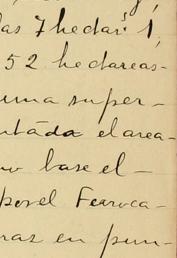 las 7 hectars 1,
52 hectareas-
una super-
ntada el area-
mo base el-
por el Ferroca-
nas en pun-